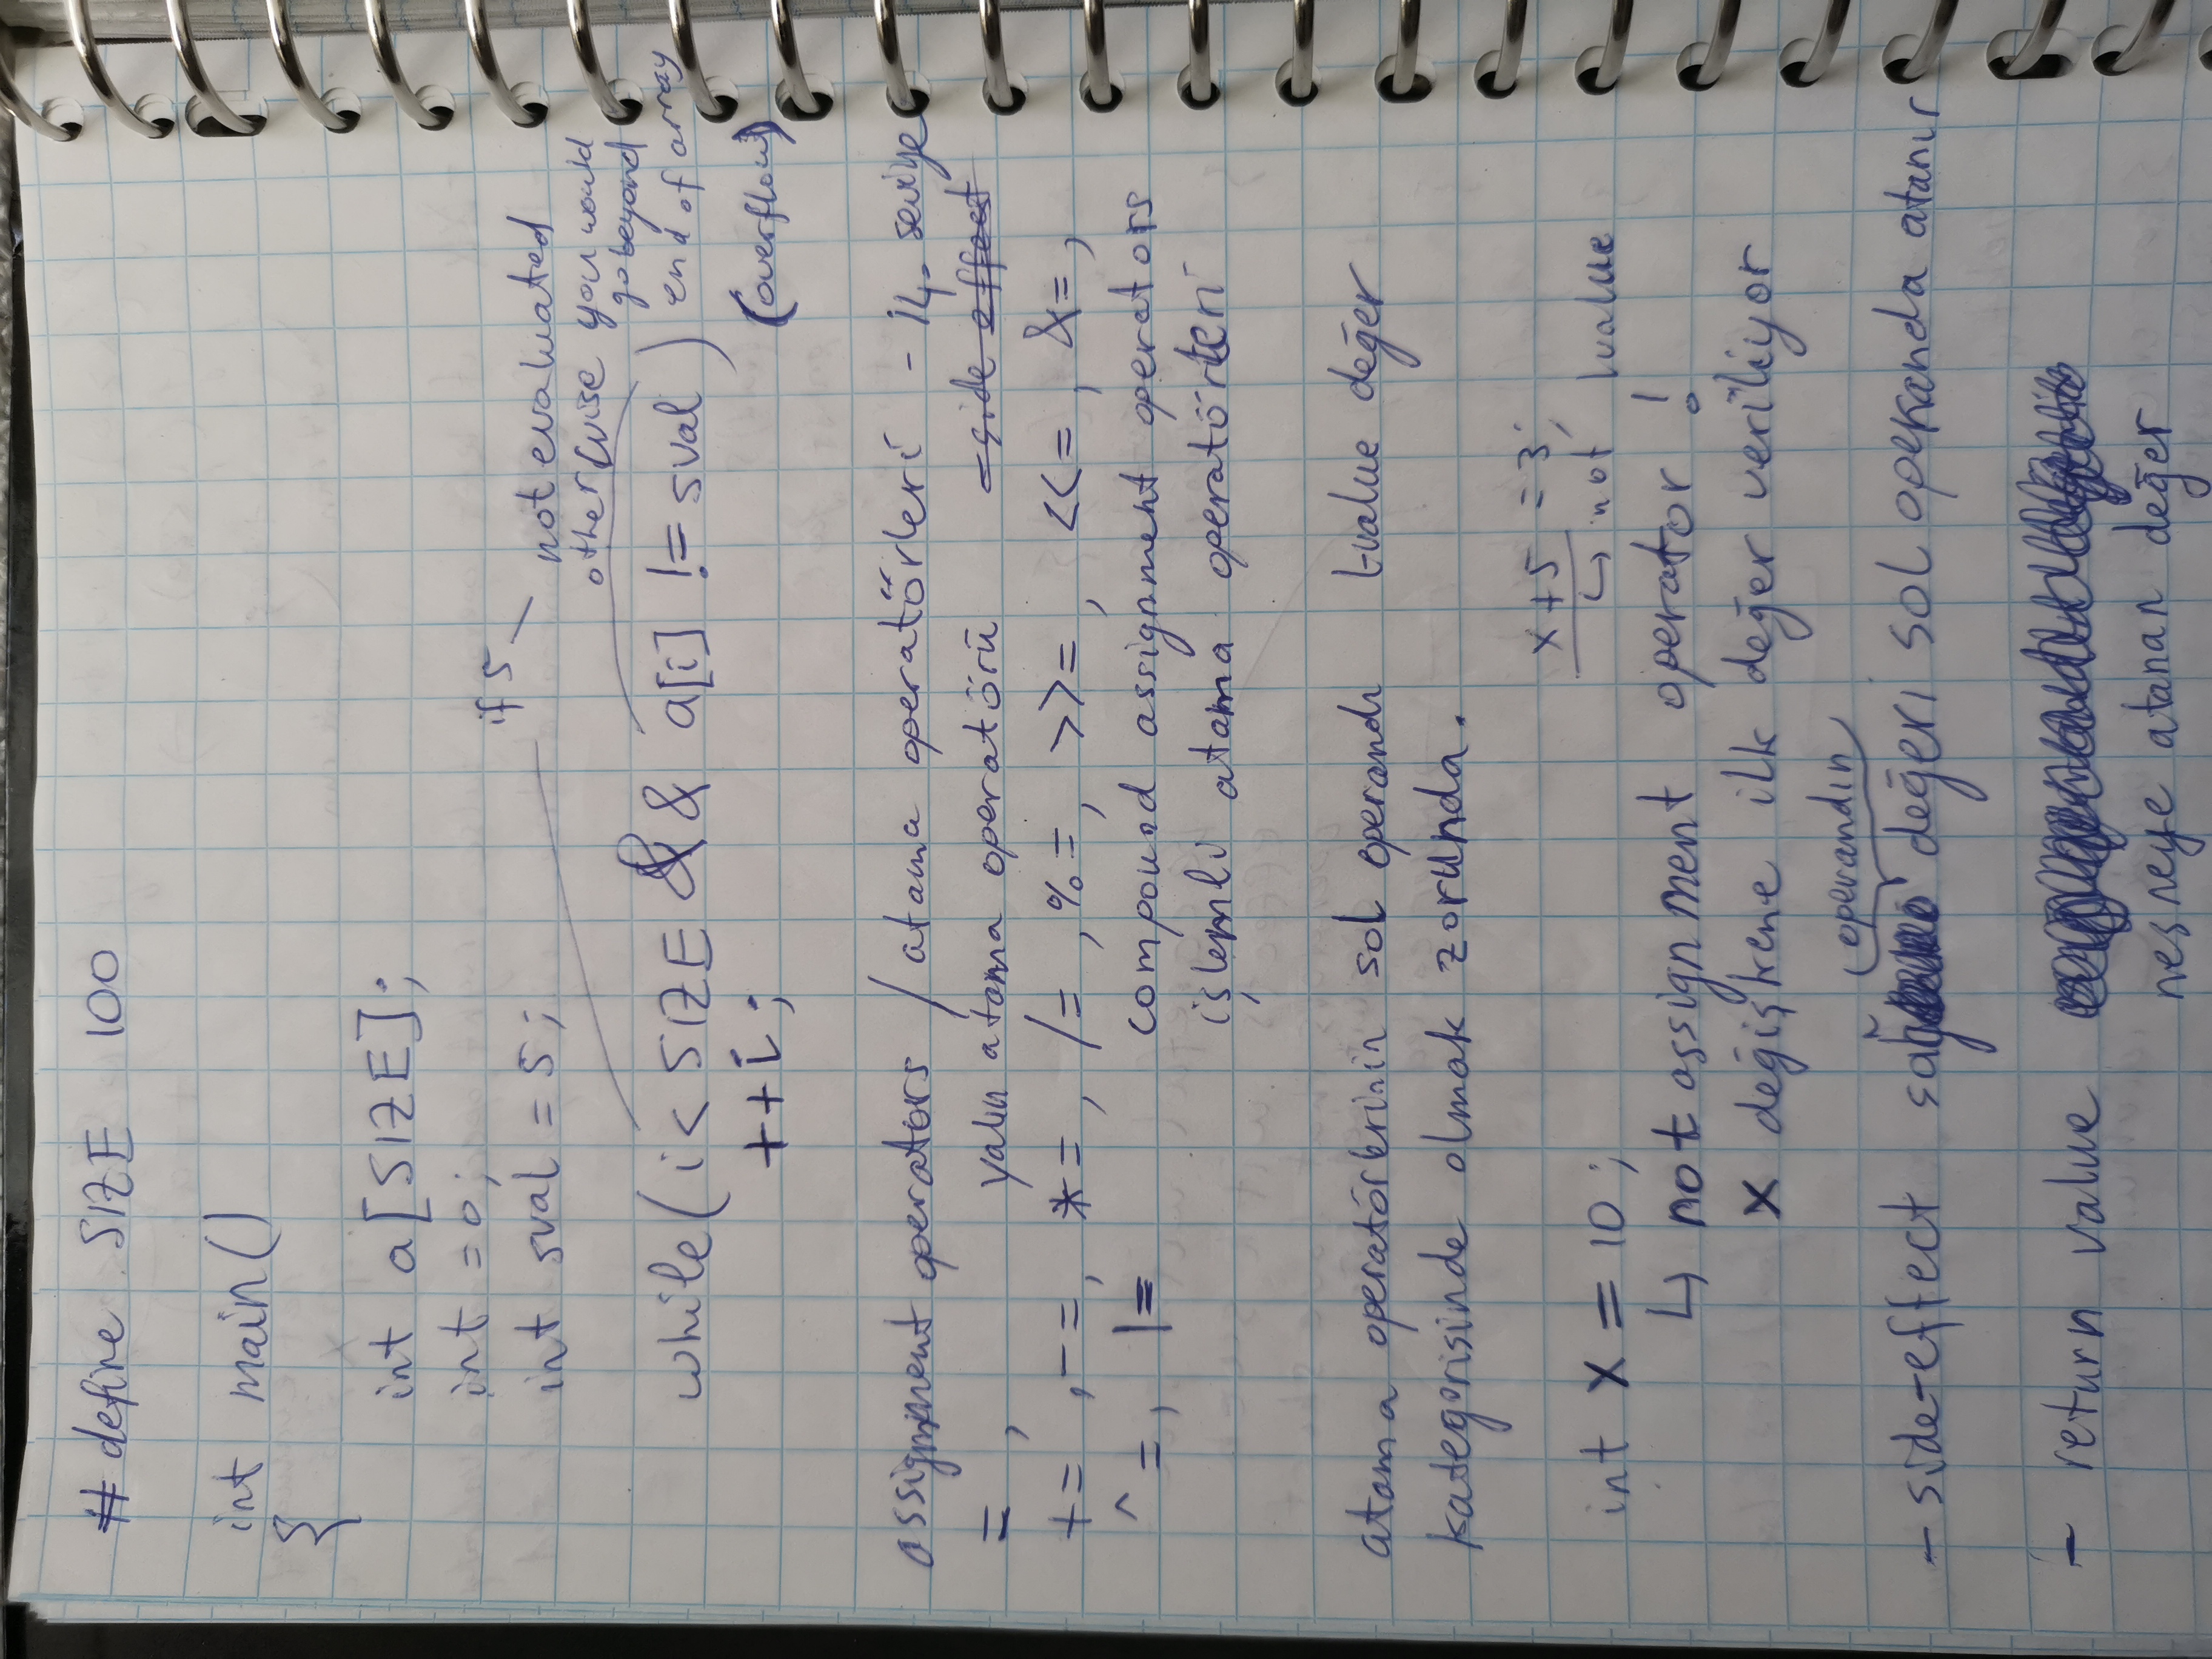 # define SIZE 100
int main()
{
int a[SIZE];
int = 0;
int sval = 5;
if 5
not evaluated
otherwise you would
go beyond
while( i < SIZE && a[i] != sval ) end of array
++i; (overflow)
assignment operators / atama operatörleri - 14. seviye
= , yalın atama operatörü - side effect
+= , -= , *= , /= , %= , >>= , <<= , &= ,
^= , |= compound assignment operators
işlemli atama operatörleri
atama operatörlerinin sol operandı L-value değer
kategorisinde olmak zorunda.
x+5 = 3;
int x = 10; ↳ not lvalue
↳ not assignment operator !
x değişkene ilk değer veriliyor
operandın
- side-effect sağ değeri sol operanda atanır
- return value
nesneye atanan değer